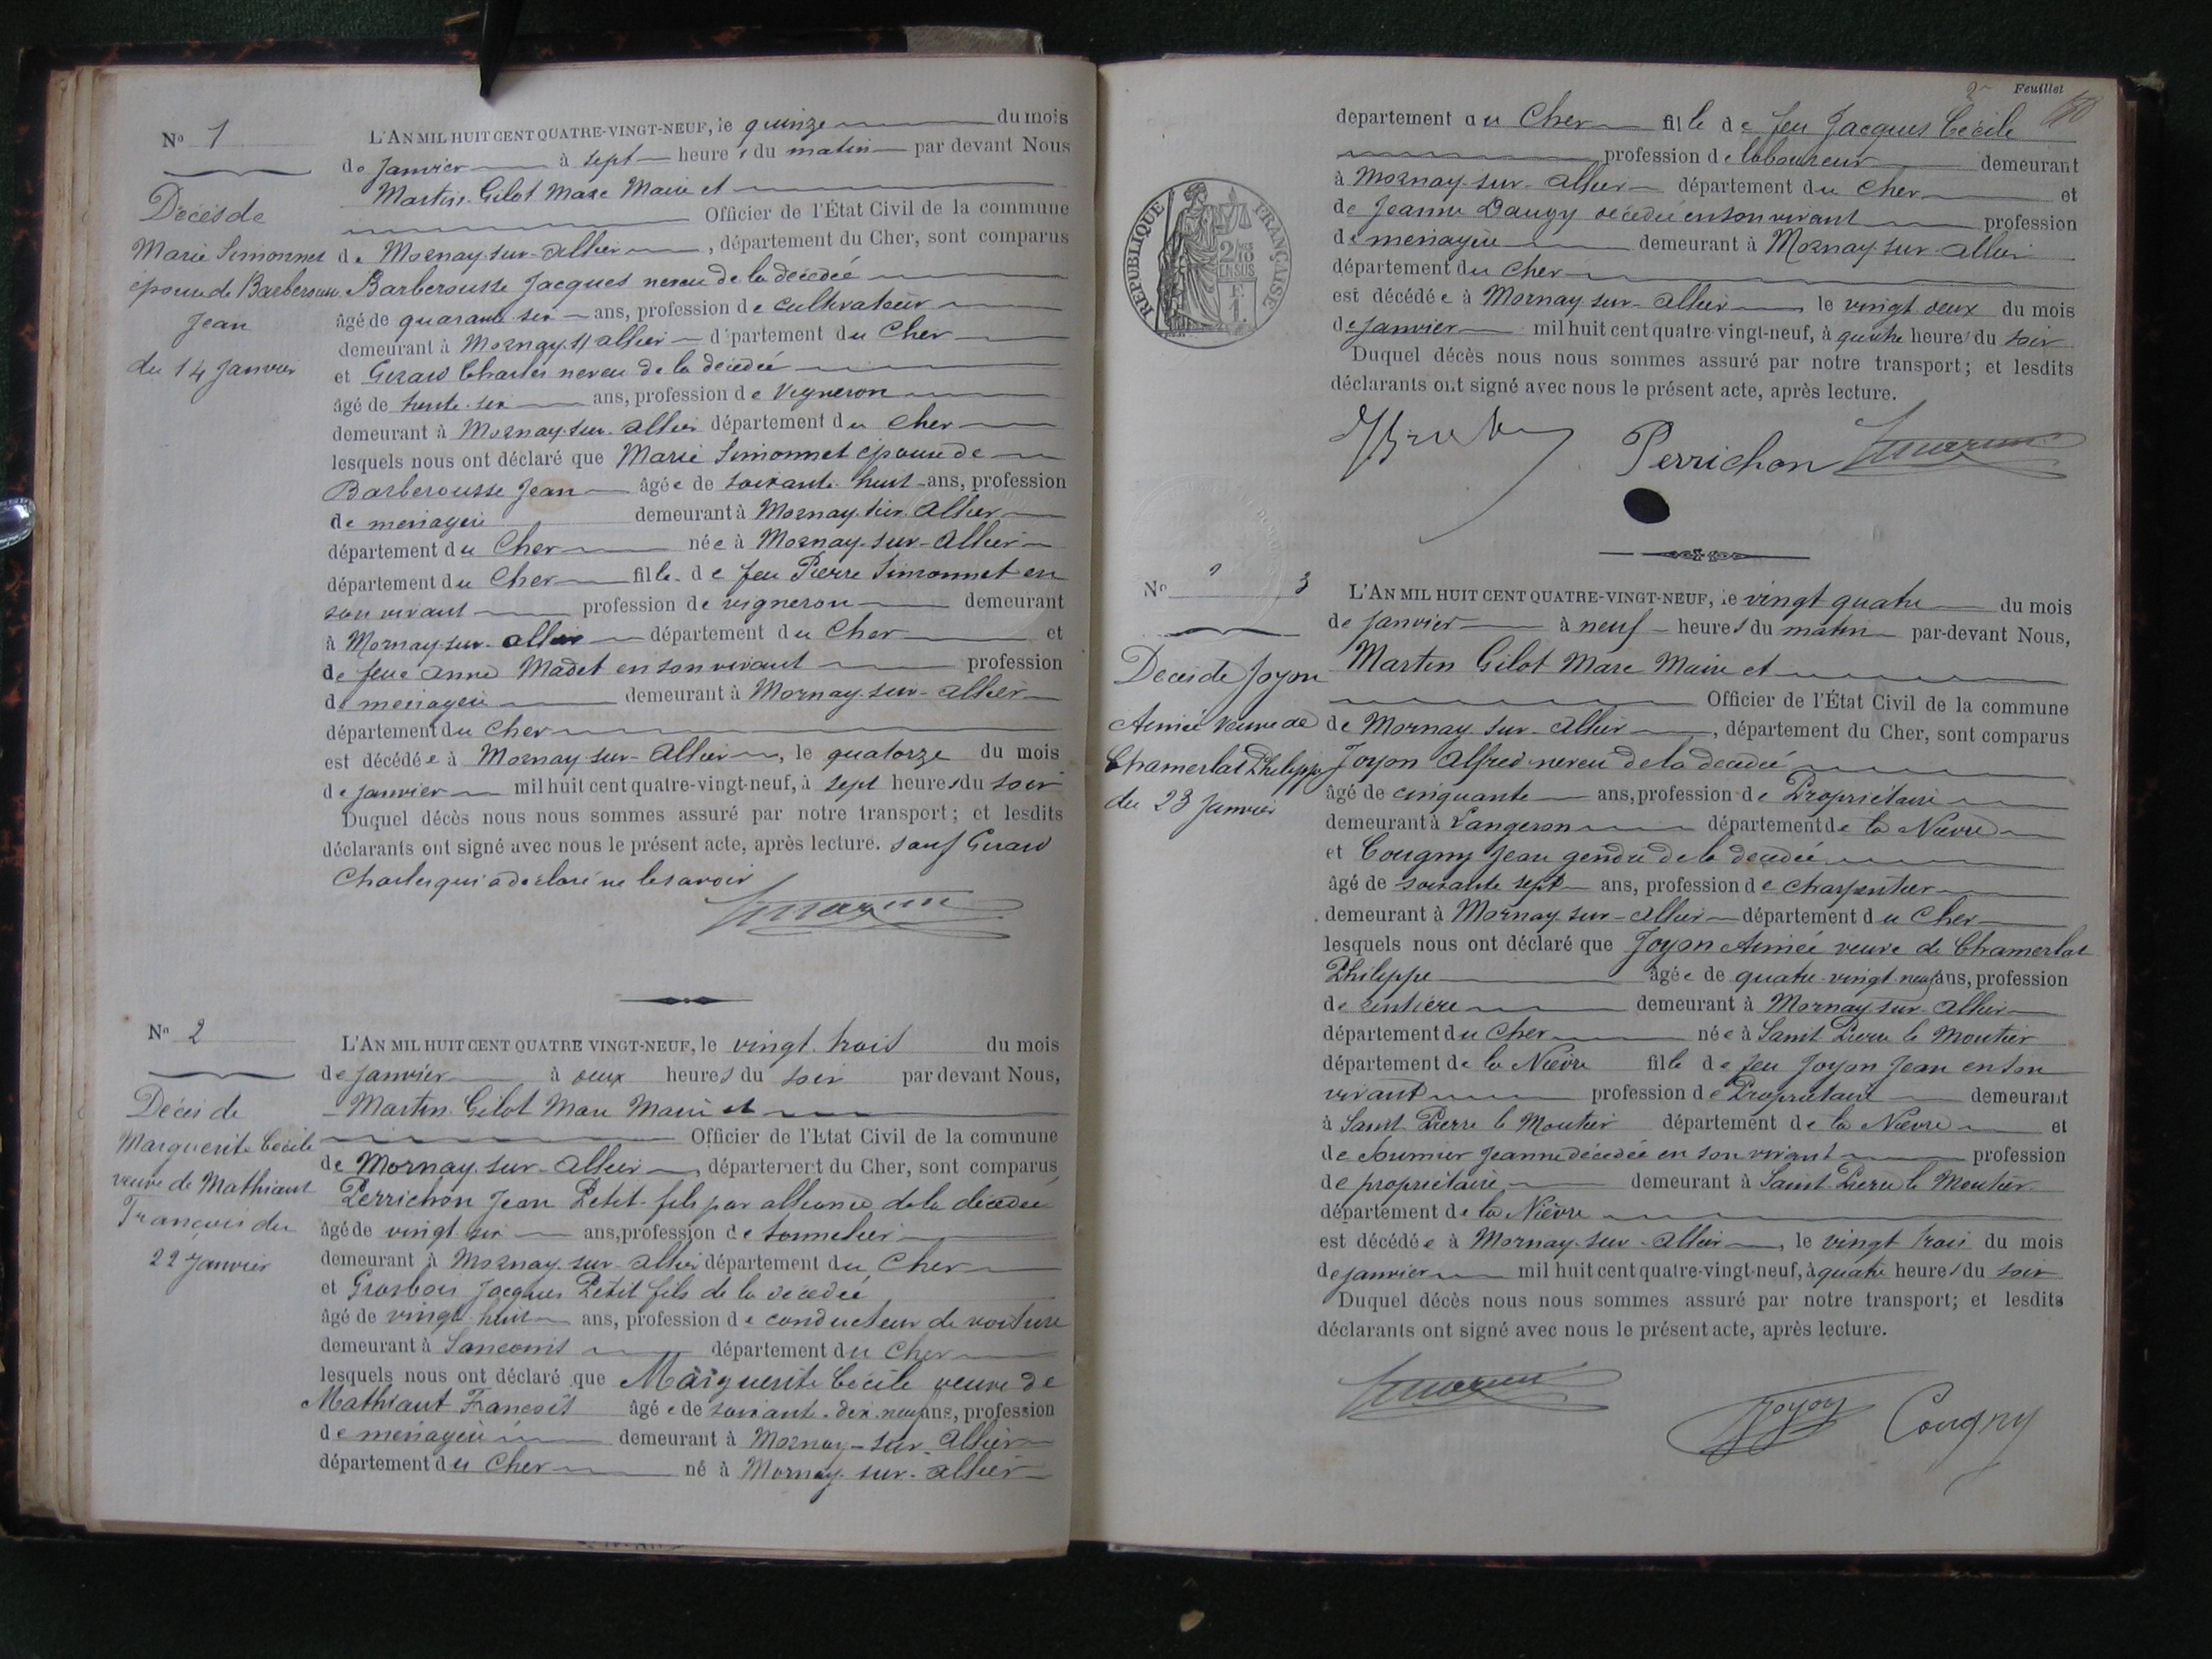 No 1
Décès de
Marie Simonnet
épouse de Barberousse
Jean
du 14 Janvier
L'AN MIL HUIT CENT QUATRE-VINGT-NEUF, le quinze du mois
de Janvier à sept heures du matin par devant Nous
Martin Gilot Marc Maire et
Officier de l'État Civil de la commune
de Mornay-sur-Allier, département du Cher, sont comparus
Barberousse Jacques neveu de la décédée
âgé de quarante six ans, profession de cultivateur
demeurant à Mornay s/ allier département du Cher
et Gerard Charles neveu de la décédée
âgé de trente-six ans, profession de Vigneron
demeurant à Mornay-sur-allier département du Cher
lesquels nous ont déclaré que Marie Simonnet épouse de
Barberousse Jean âgée de soixante-huit ans, profession
de menagère demeurant à Mornay-sur-Allier
département du Cher née à Mornay-sur-Allier
département du Cher fille de feu Pierre Simonnet en
son vivant profession de vigneron demeurant
à Mornay-sur-allier département du Cher et
de feue Anne Madet en son vivant profession
de menagère demeurant à Mornay-sur-Allier
département du Cher
est décédée à Mornay-sur-Allier, le quatorze du mois
de janvier mil huit cent quatre-vingt-neuf, à sept heures du soir
Duquel décès nous nous sommes assuré par notre transport; et lesdits
déclarants ont signé avec nous le présent acte, après lecture. sauf Gerard
Charles qui a déclaré ne le savoir
No 2
Décès de
Marguerite Cécile
veuve de Mathiaut
François du
22 Janvier
L'AN MIL HUIT CENT QUATRE VINGT-NEUF, le vingt-trois du mois
de janvier à deux heures du soir par devant Nous,
Martin Gilot Marc Maire et
Officier de l'Etat Civil de la commune
de Mornay-sur-Allier, département du Cher, sont comparus
Perrichon Jean Petit-fils par alliance de la décédée
âgé de vingt-six ans, profession de tonnelier
demeurant à Mornay-sur-allier département du Cher
et Grosbois Jacques Petit fils de la décédée
âgé de vingt-huit ans, profession de conducteur de voiture
demeurant à Sancoins département du Cher
lesquels nous ont déclaré que Marguerite Cécile veuve de
Mathiaut François âgée de soixante-dix-neuf ans, profession
de menagère demeurant à Mornay-sur-Allier
département du Cher né à Mornay-sur-Allier
2e Feuillet
département du Cher fille de feu Jacques Cécile
profession de laboureur demeurant
à Mornay-sur-Allier département du Cher et
de Jeanne Daugy décédée en son vivant profession
de menagère demeurant à Mornay-sur-Allier
département du Cher
est décédée à Mornay-sur-Allier le vingt deux du mois
de janvier mil huit cent quatre-vingt-neuf, à quatre heures du soir
Duquel décès nous nous sommes assuré par notre transport; et lesdits
déclarants ont signé avec nous le présent acte, après lecture.
Perrichon
RÉPUBLIQUE FRANÇAISE
No 3
Décès de Joyon
Aimée veuve de
Chamerlat Philippe
du 23 Janvier
L'AN MIL HUIT CENT QUATRE-VINGT-NEUF, le vingt quatre du mois
de janvier à neuf heures du matin par-devant Nous,
Martin Gilot Marc Maire et
Officier de l'État Civil de la commune
de Mornay-sur-Allier, département du Cher, sont comparus
Joyon Alfred neveu de la décédée
âgé de cinquante ans, profession de Propriétaire
demeurant à Langeron département de la Nièvre
et Cougny Jean gendre de la décédée
âgé de soixante sept ans, profession de charpentier
demeurant à Mornay-sur-Allier département du Cher
lesquels nous ont déclaré que Joyon Aimée veuve de Chamerlat
Philippe âgée de quatre-vingt-neuf ans, profession
de rentière demeurant à Mornay-sur-Allier
département du Cher née à Saint-Pierre le Moutier
département de la Nièvre fille de feu Joyon Jean en son
vivant profession de Propriétaire demeurant
à Saint Pierre le Moutier département de la Nièvre et
de Jeanne décédée en son vivant profession
de propriétaire demeurant à Saint-Pierre le Moutier
département de la Nièvre
est décédée à Mornay-sur-Allier, le vingt trois du mois
de janvier mil huit cent quatre-vingt-neuf, à quatre heures du soir
Duquel décès nous nous sommes assuré par notre transport; et lesdits
déclarants ont signé avec nous le présent acte, après lecture.
Joyon Cougny